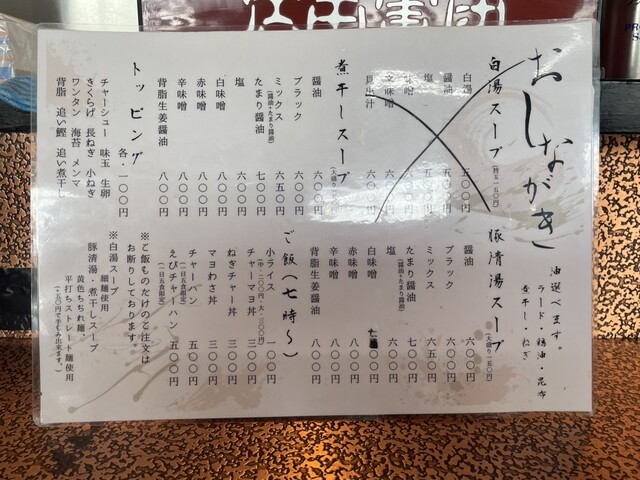 おしながき
白湯スープ(替玉一五〇円)
白湯 五〇〇円
醤油
塩
貝出汁 六〇〇円
煮干しスープ(大盛り一五〇円)
醤油 六〇〇円
ブラック 六〇〇円
ミックス(醤油+たまり醤油) 六五〇円
たまり醤油 七〇〇円
塩 六〇〇円
白味噌 八〇〇円
赤味噌 八〇〇円
辛味噌 八〇〇円
背脂生姜醤油 八〇〇円
トッピング 各・一〇〇円
チャーシュー 味玉 生卵
きくらげ 長ねぎ 小ねぎ
ワンタン 海苔 メンマ
背脂 追い鰹 追い煮干し
油選べます。
ラード・鶏油・昆布
煮干し・ねぎ
豚清湯スープ(大盛り一五〇円)
醤油 六〇〇円
ブラック 六〇〇円
ミックス(醤油+たまり醤油) 六五〇円
たまり醤油 七〇〇円
塩 六〇〇円
白味噌 八〇〇円
赤味噌 八〇〇円
辛味噌 八〇〇円
背脂生姜醤油 八〇〇円
ご飯(七時〜)
小ライス 一〇〇円
(中・二〇〇円・大・三〇〇円)
チャーマヨ丼 三〇〇円
ねぎチャー丼 三〇〇円
マヨわさ丼 三〇〇円
チャーハン 五〇〇円
(一日五食限定)
えびチャーハン 五〇〇円
(一日五食限定)
※ご飯ものだけのご注文は
お断りしております。
※白湯スープ
細麺使用
豚清湯・煮干しスープ
黄色ちぢれ麺
平打ちストレート麺使用
(+五〇円で手もみ出来ます。)